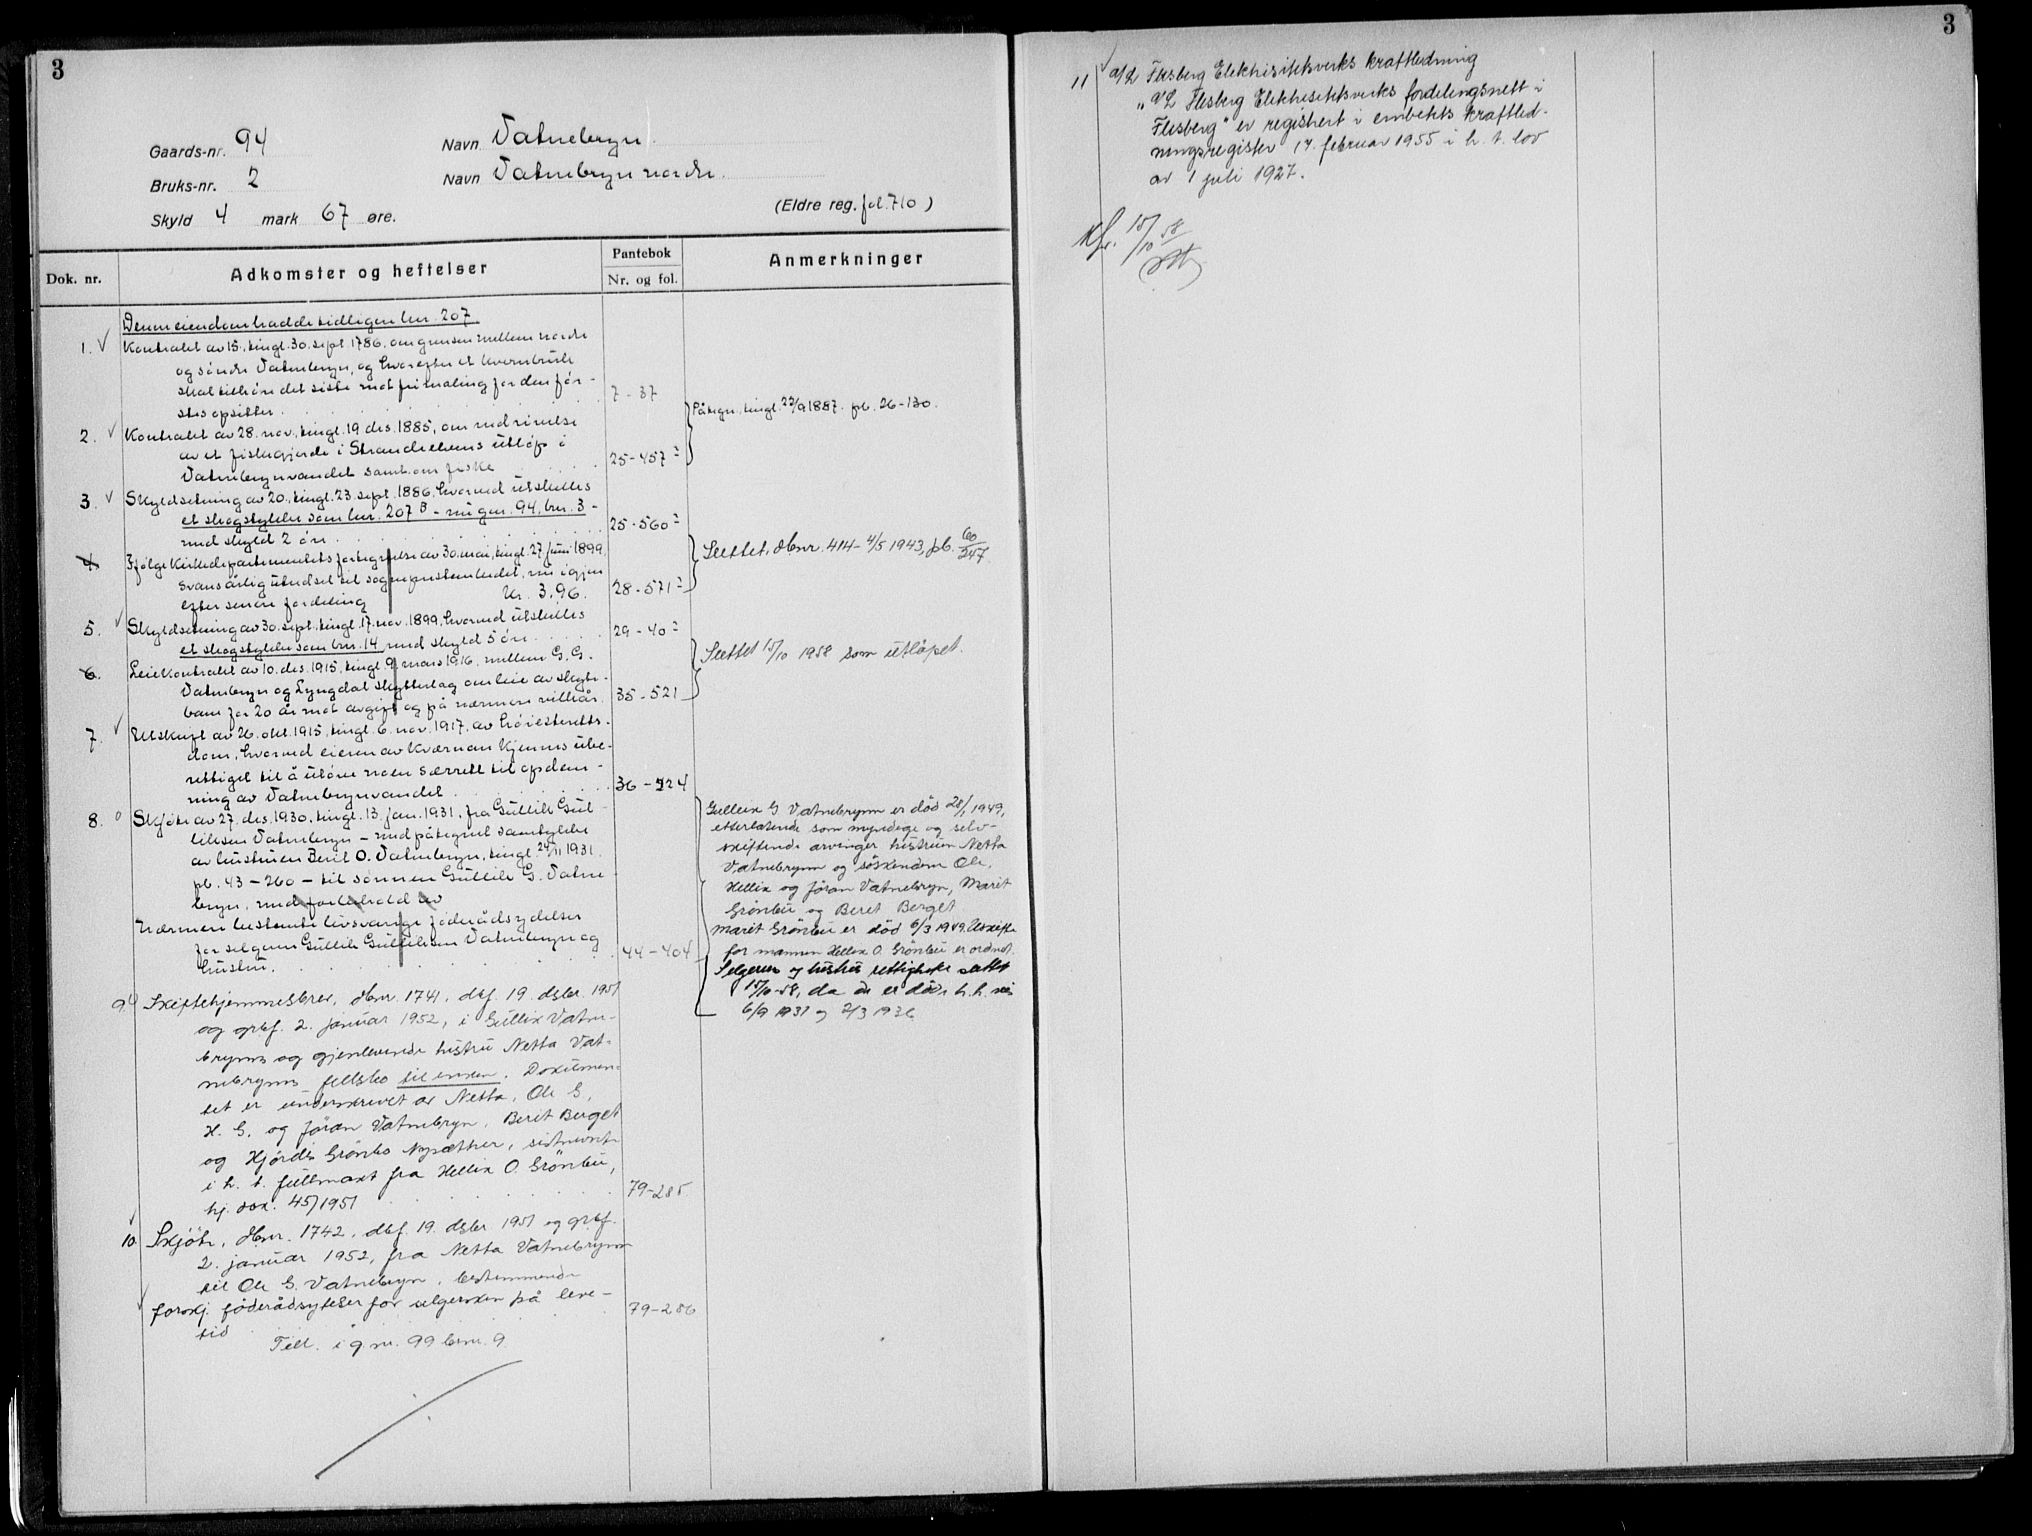 3
Gaards-nr. 94
Navn Vatnebryn.
Bruks-nr. 2
Navn Vatnebryn nordre.
Skyld 4 mark 67 øre.
(Eldre reg. fol. 710)
Dok. nr.
Adkomster og heftelser
Pantebok
Nr. og fol.
Anmerkninger
Denne eiendom hadde tidligere lnr. 207
1. Kontrakt av 15., tingl. 30. sept. 1786, om grensen mellem nordre
og søndre Vatnebryn, og hvorefter et kvernbruk
skal tilhøre det siste mot fri maling for den før-
stes opsitter. 7 - 37
2. Kontrakt av 28. nov., tingl. 19. des. 1885, om nedrivelse
av et fiskegjerde i Strandelvens utløp i
Vatnebrynvandet samt om fiske 25-457²
Påtegn., tingl. 22/9 1887. pb. 26-130.
3. Skyldsetning av 20., tingl. 23. sept. 1886, hvorved utskilles
et skogstykke som lnr. 207 B - nu gnr. 94, bnr. 3 -
med skyld 2 øre. 25-560²
4. Ifølge Kirkedepartementets fortegnelse av 30. mai, tingl. 27. juni 1899,
svares årlig utredsel til sogneprestembedet, nu igjen
efter senere fordeling kr. 3.96. 28-571²
Slettet, dbnr. 414 - 4/5 1943, pb. 60/247
5. Skyldsetning av 30. sept., tingl. 17. nov. 1899, hvorved utskilles
et skogstykke som bnr. 14 med skyld 5 øre. 29-40²
6. Leiekontrakt av 10. des. 1915, tingl. 9. mars 1916, mellem G. G.
Vatnebryn og Lyngdal skytterlag om leie av skyte-
bane for 20 år mot avgift og på nærmere vilkår. 35-521
Slettet 15/10 1958 som utløpet.
7. Utskrift av 26. okt. 1915, tingl. 6. nov. 1917, av høiesteretts-
dom, hvorved eieren av Kværnan kjennes ube-
rettiget til å utøve noen særrett til opdem-
ning av Vatnebrynvandet. 36-224
8. Skjøte av 27. des. 1930, tingl. 13. jan. 1931, fra Gullik Gul-
liksen Vatnebryn - med påtegnet samtykke
av hustruen Jøril O. Vatnebryn, tingl. 24/11 1931.
pb. 43-260 - til sønnen Gullik G. Vatne-
bryn, med forbehold av
nærmere bestemte livsvarige føderådsydelser
for selgeren Gullik Gulliksen Vatnebryn og
hustru. 44-404
Gullix G Vatnebrynn er død 28/1 1949,
etterlatende som myndige og selv-
skiftende arvinger hustruen Netta
Vatnebrynn og søskendene Ole,
Hellix og Jøran Vatnebryn, Marit
Grönbu og Beret Berget
Marit Grönbu er død 6/3 1949. Uskifte
for mannen Hellix O. Grönbu er ordnet.
Selgeren og hustrus rettigheter slettet
15/10-58, da de er døde h.h.vis
6/9 1931 og 2/3 1936
9. Skiftehjemmelsbrev, dbnr. 1741, dbf. 19. dsbr. 1951
og grbf. 2. januar 1952, i Gullix Vatne-
brynns og gjenlevende hustru Netta Vat-
nebrynns fellsbo til enken. Dokumen-
tet er underskrevet av Netta, Ole G,
H. G. og Jöran Vatnebryn, Beret Berget
og Hjördis Grönbo Nysæther, sistnevnte
i h. t. fullmaxt fra Hellix O. Grönbu,
hj. dox. 45/1951 79-285.
10. Skjöte, dbnr. 1742, dbf. 19. dsbr 1951 og grbf.
2. januar 1952, fra Netta Vatnebrynn
til Ole G. Vatnebryn, bestemmende
forskj. föderådsytelser for selgersken på leve-
tid 79-286
Till. i gnr. 99 bnr. 9.
3
11 A/L Flesberg Elektrisitetsverks kraftledning
"A/L Flesberg Elektrisitetsverks fordelingsnett i
Flesberg" er registrert i embetets kraftled-
ningsregister 17. februar 1955 i h. t. lov
av 1 juli 1927.
Kfr. 15/10 58